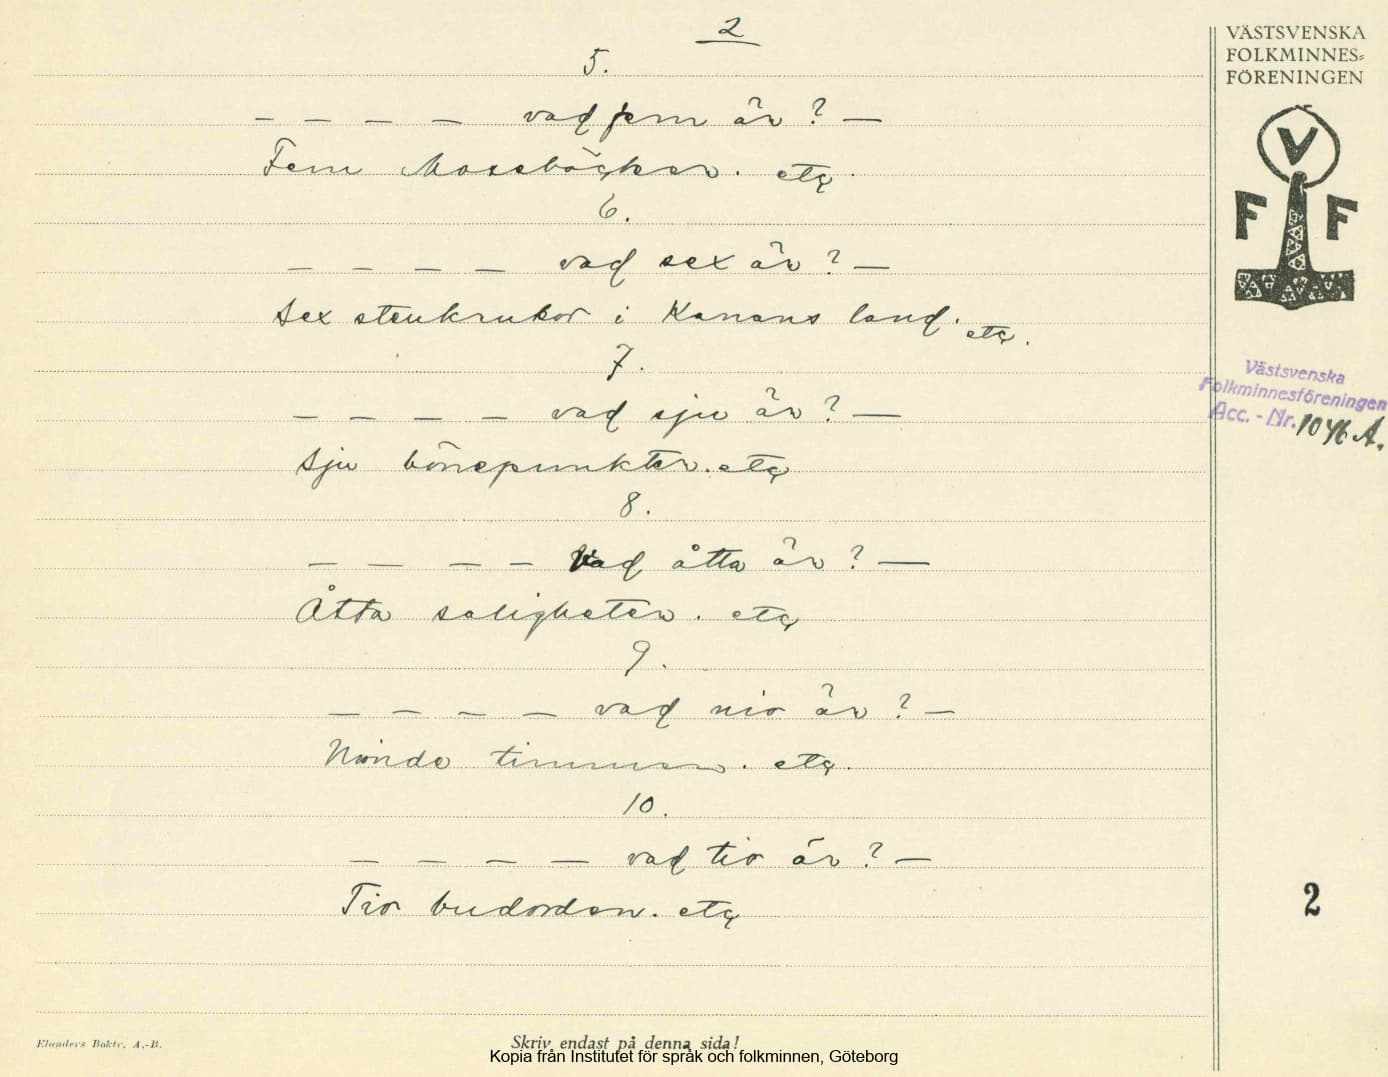 2
5.
— — — — vad fem är? —
Fem Moseböcker. etc.
6.
— — — — vad sex är? —
Sex stenkrukor i Kanans land. etc.
7.
— — — — vad sju är? —
Sju bönepunkter. etc
8.
— — — — Vad åtta är? —
Åtta saligheter. etc
9.
— — — — vad nio är? —
Nionde timmen. etc.
10.
— — — — vad tio är? —
Tio budorden. etc
VÄSTSVENSKA
FOLKMINNES=
FÖRENINGEN
V
F F
Västsvenska
Folkminnesföreningen
Acc. - Nr. 1046 A.
2
Elanders Boktr. A.-B.
Skriv endast på denna sida!
Kopia från Institutet för språk och folkminnen, Göteborg